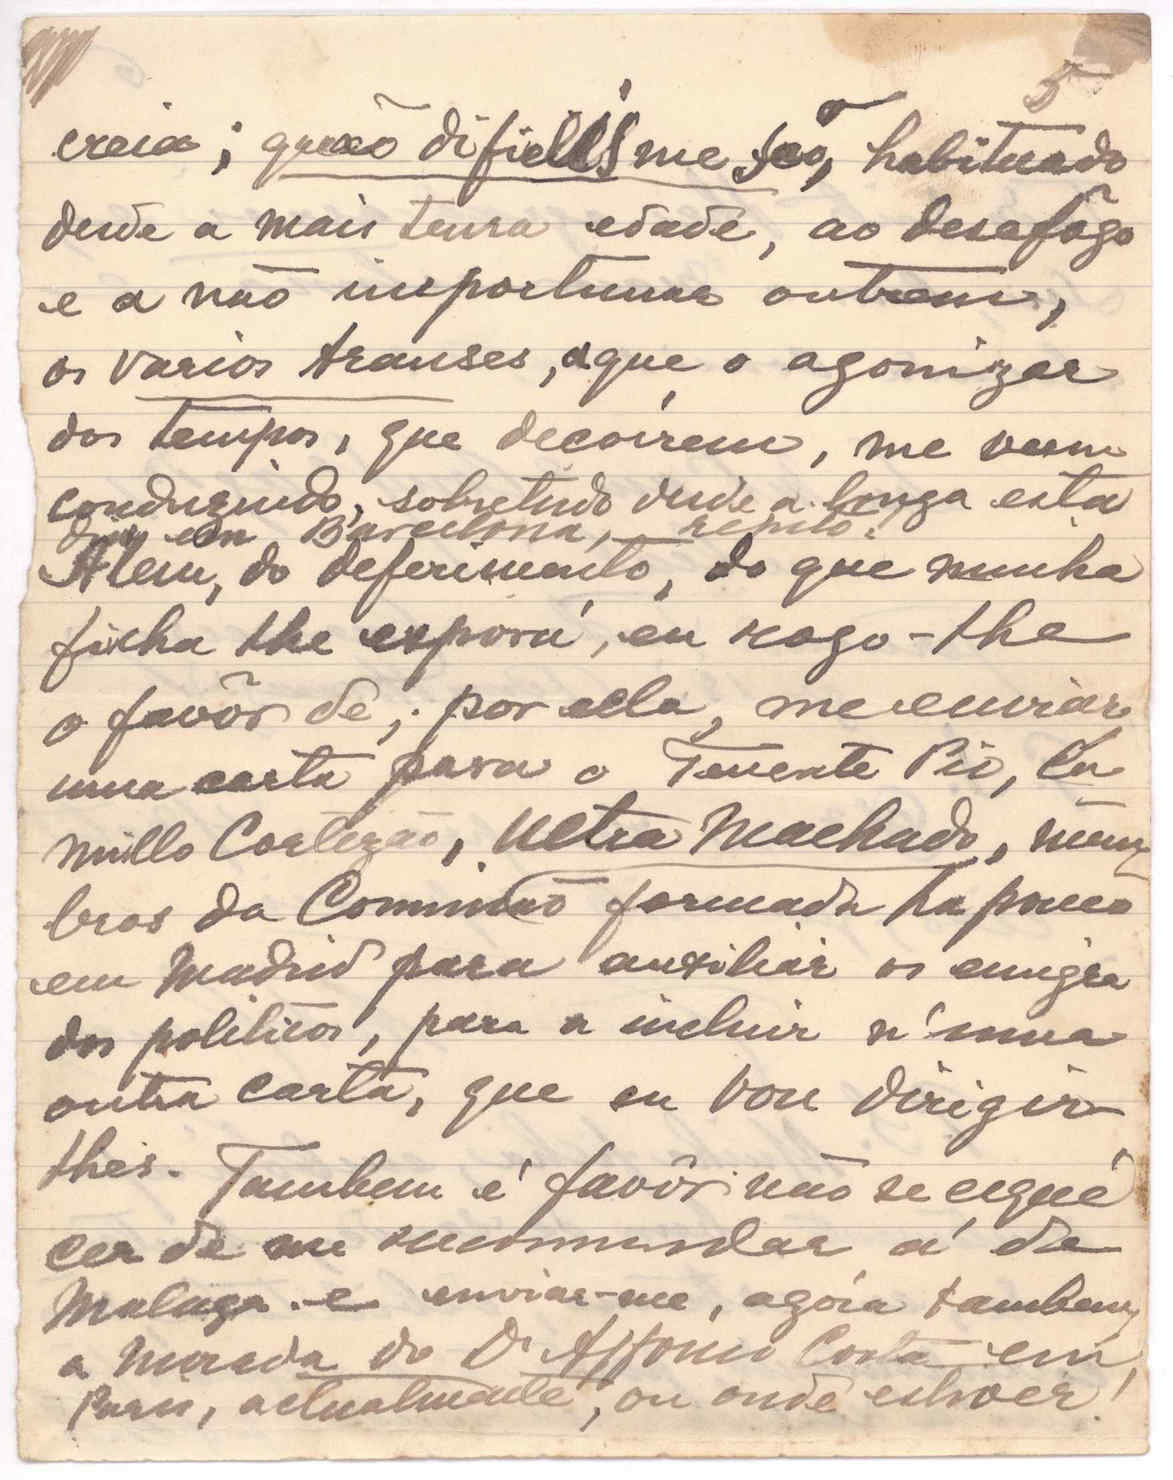 5
creia; quão dificeis me são, habituado
desde a mais tenra edade, ao desafôgo
e a não importunar outrem,
os varios transes, a que o agonizar
dos tempos, que decorrem, me veem
conduzindo, sobretudo desde a longa esta
dia em Barcelona, repito.
Alem, do deferimento, do que minha
ficha lhe exporá, eu rogo-lhe
o favôr de, por ella, me enviar
uma carta para o Tenente Pio, Ca
millo Cortezão, Utra Machado, mem
bros da Commissão formada ha pouco
em Madrid para auxiliar os emigra
dos politicos, para a incluir n'uma
outra carta, que eu vou dirigir-
lhes. Tambem é favôr não se esque
cer de me recommendar á de
Malaga e enviar-me, agora tambem,
a morada do Dr Affonso Costa em
Paris, actualmente, ou onde estiver!